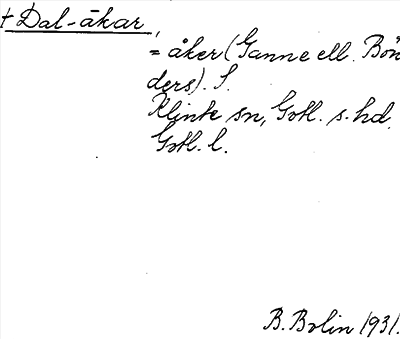 + Dal-åkar,
= åker (Ganne ell. Bön
ders). S.
Klinte sn, Gotl. s. hd.
Gotl. l.
B. Bolin 1931.